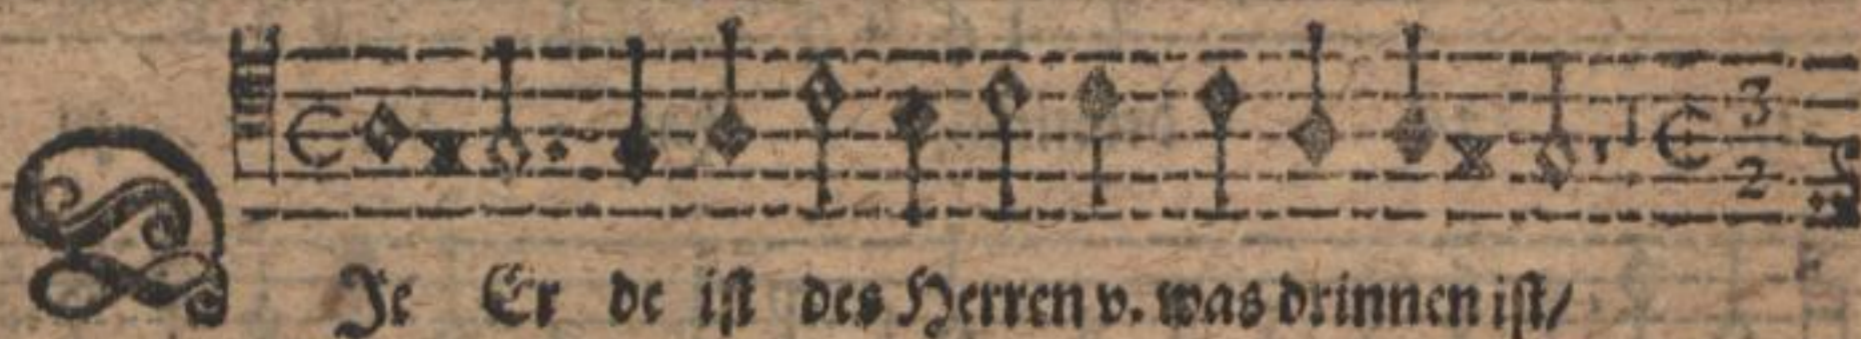 3
2
DIe Er de ist des Herren v. was drinnen ist/